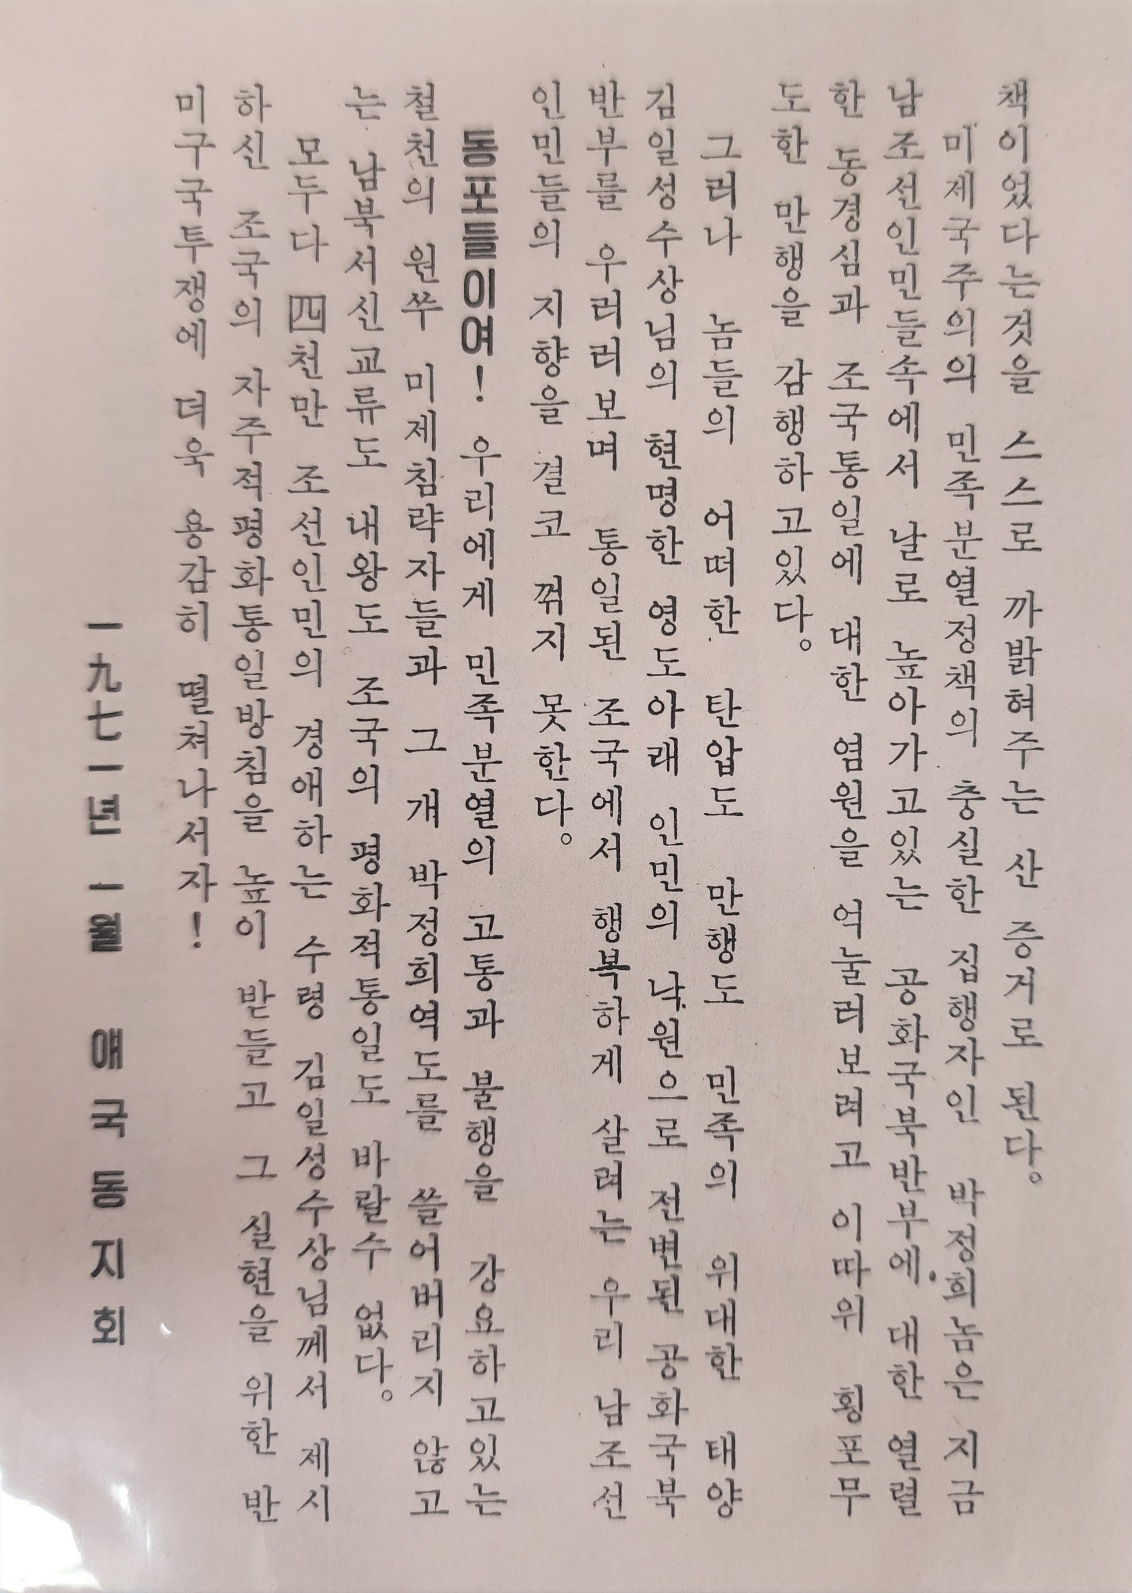 책이었다는것을 스스로 까밝혀주는 산 증거로 된다.
미제국주의의 민족분열정책의 충실한 집행자인 박정희놈은 지금
남조선인민들속에서 날로 높아가고있는 공화국북반부에 대한 열렬
한 동경심과 조국통일에 대한 염원을 억눌러보려고 이따위 횡포무
도한 만행을 감행하고있다.
그러나 놈들의 어떠한 탄압도 만행도 민족의 위대한 태양
김일성수상님의 현명한 영도아래 인민의 낙원으로 전변된 공화국북
반부를 우러러보며 통일된 조국에서 행복하게 살려는 우리 남조선
인민들의 지향을 결코 꺾지 못한다.
동포들이여! 우리에게 민족분열의 고통과 불행을 강요하고있는
철천의 원쑤 미제침략자들과 그 개 박정희역도를 쓸어버리지 않고
는 남북서신교류도 내왕도 조국의 평화적통일도 바랄수 없다.
모두다 四천만 조선인민의 경애하는 수령 김일성수상님께서 제시
하신 조국의 자주적평화통일방침을 높이 받들고 그 실현을 위한 반
미구국투쟁에 더욱 용감히 떨쳐나서자!
一九七一년 一월 애국동지회